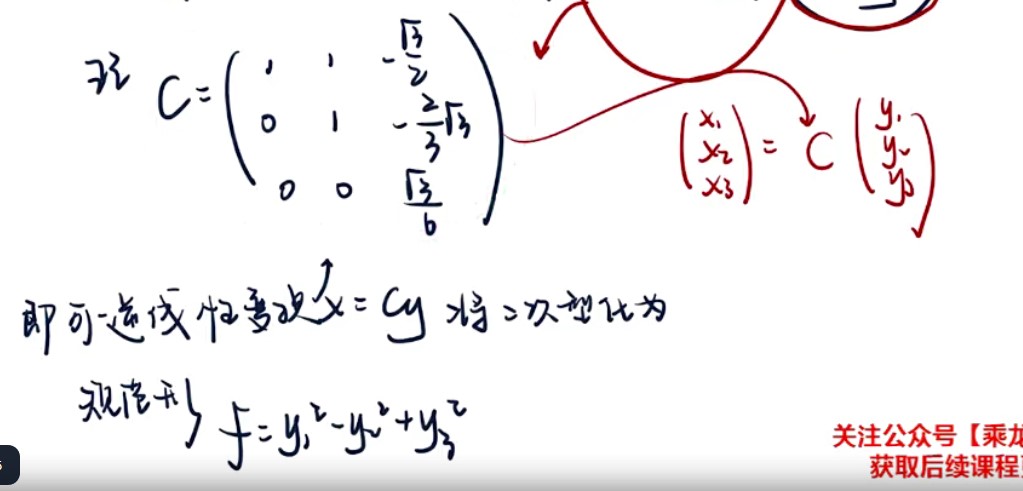 记 C = ( 1 1 -√3/2
0 1 -2/3 √3
0 0 √3/6 )
( x₁ x₂ x₃ ) = C ( y₁ y₂ y₃ )
即可逆线性变换 x = Cy 将二次型化为
规范形 f = y₁² - y₂² + y₃²
关注公众号【乘龙
获取后续课程